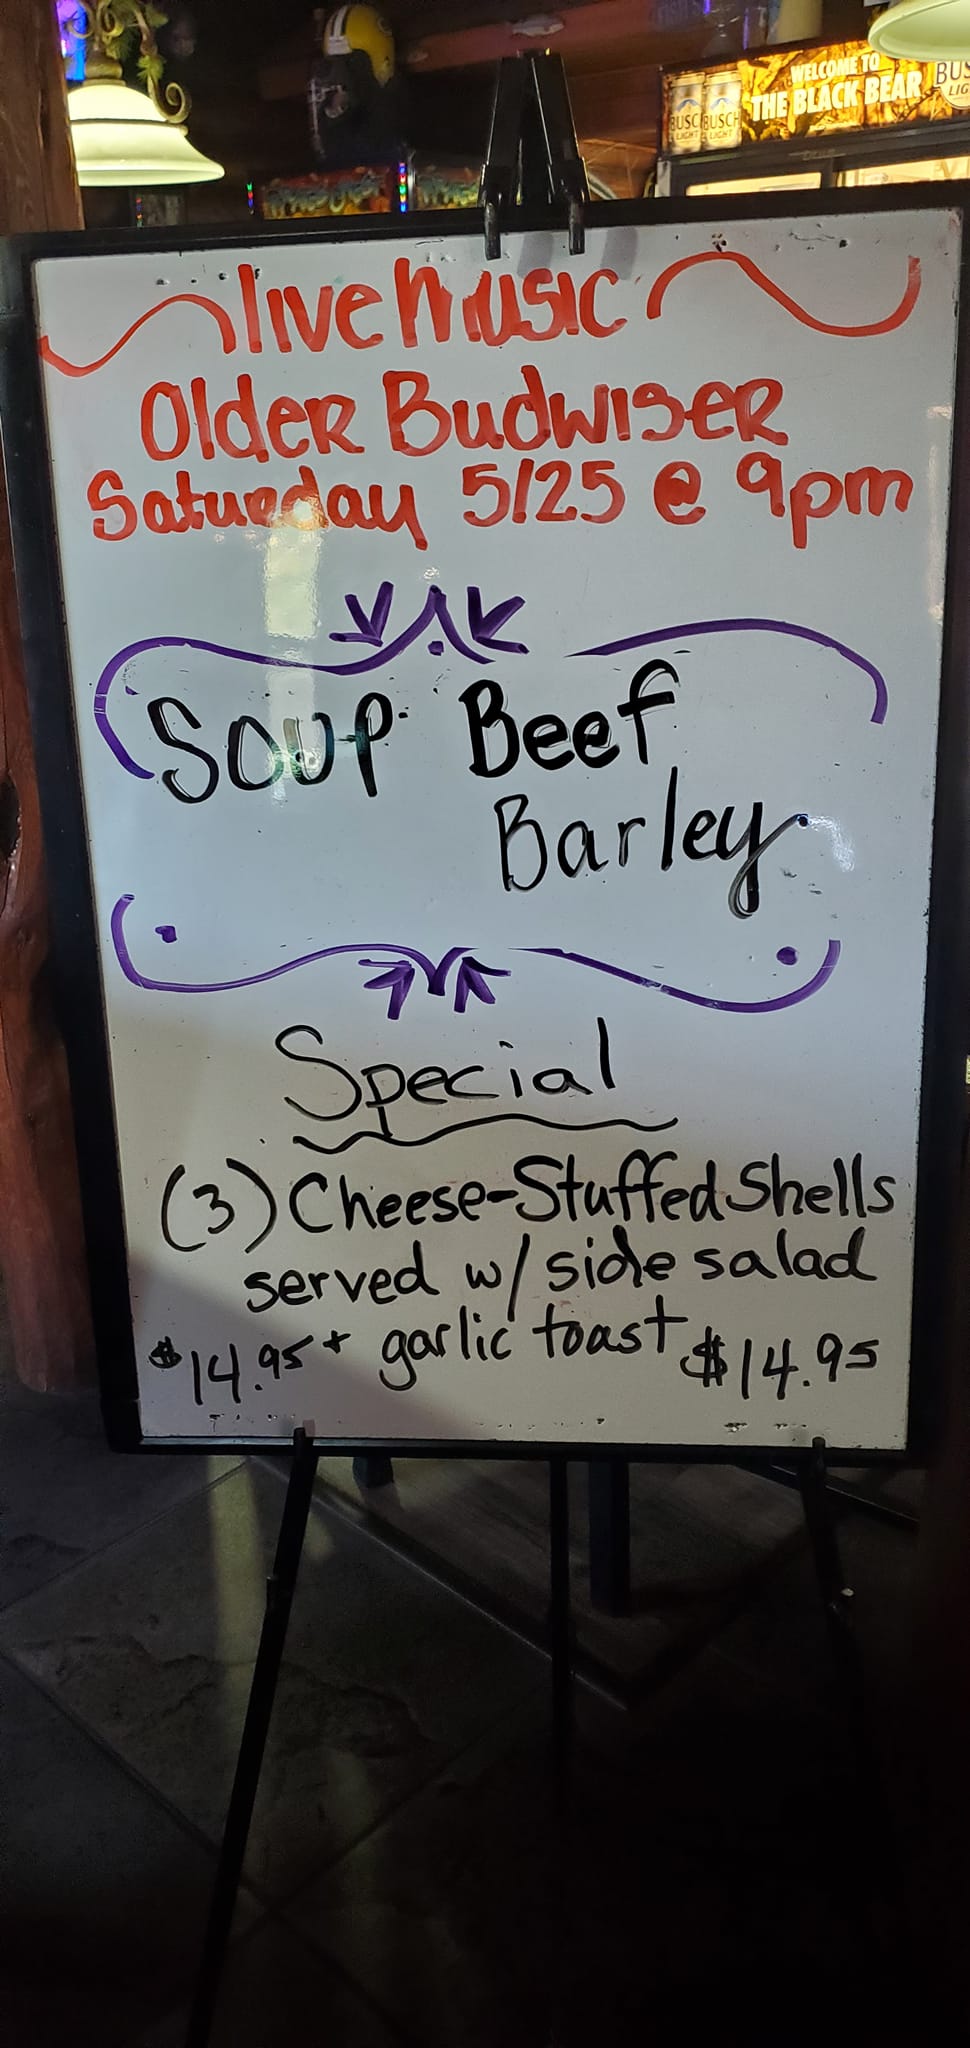 WELCOME TO
THE BLACK BEAR
BUSCH
LIGHT
live Music
Older Budwiser
Saturday 5/25 @ 9pm
Soup Beef
Barley
Special
(3) Cheese-Stuffed Shells
served w/ side salad
$14.95 + garlic toast $14.95